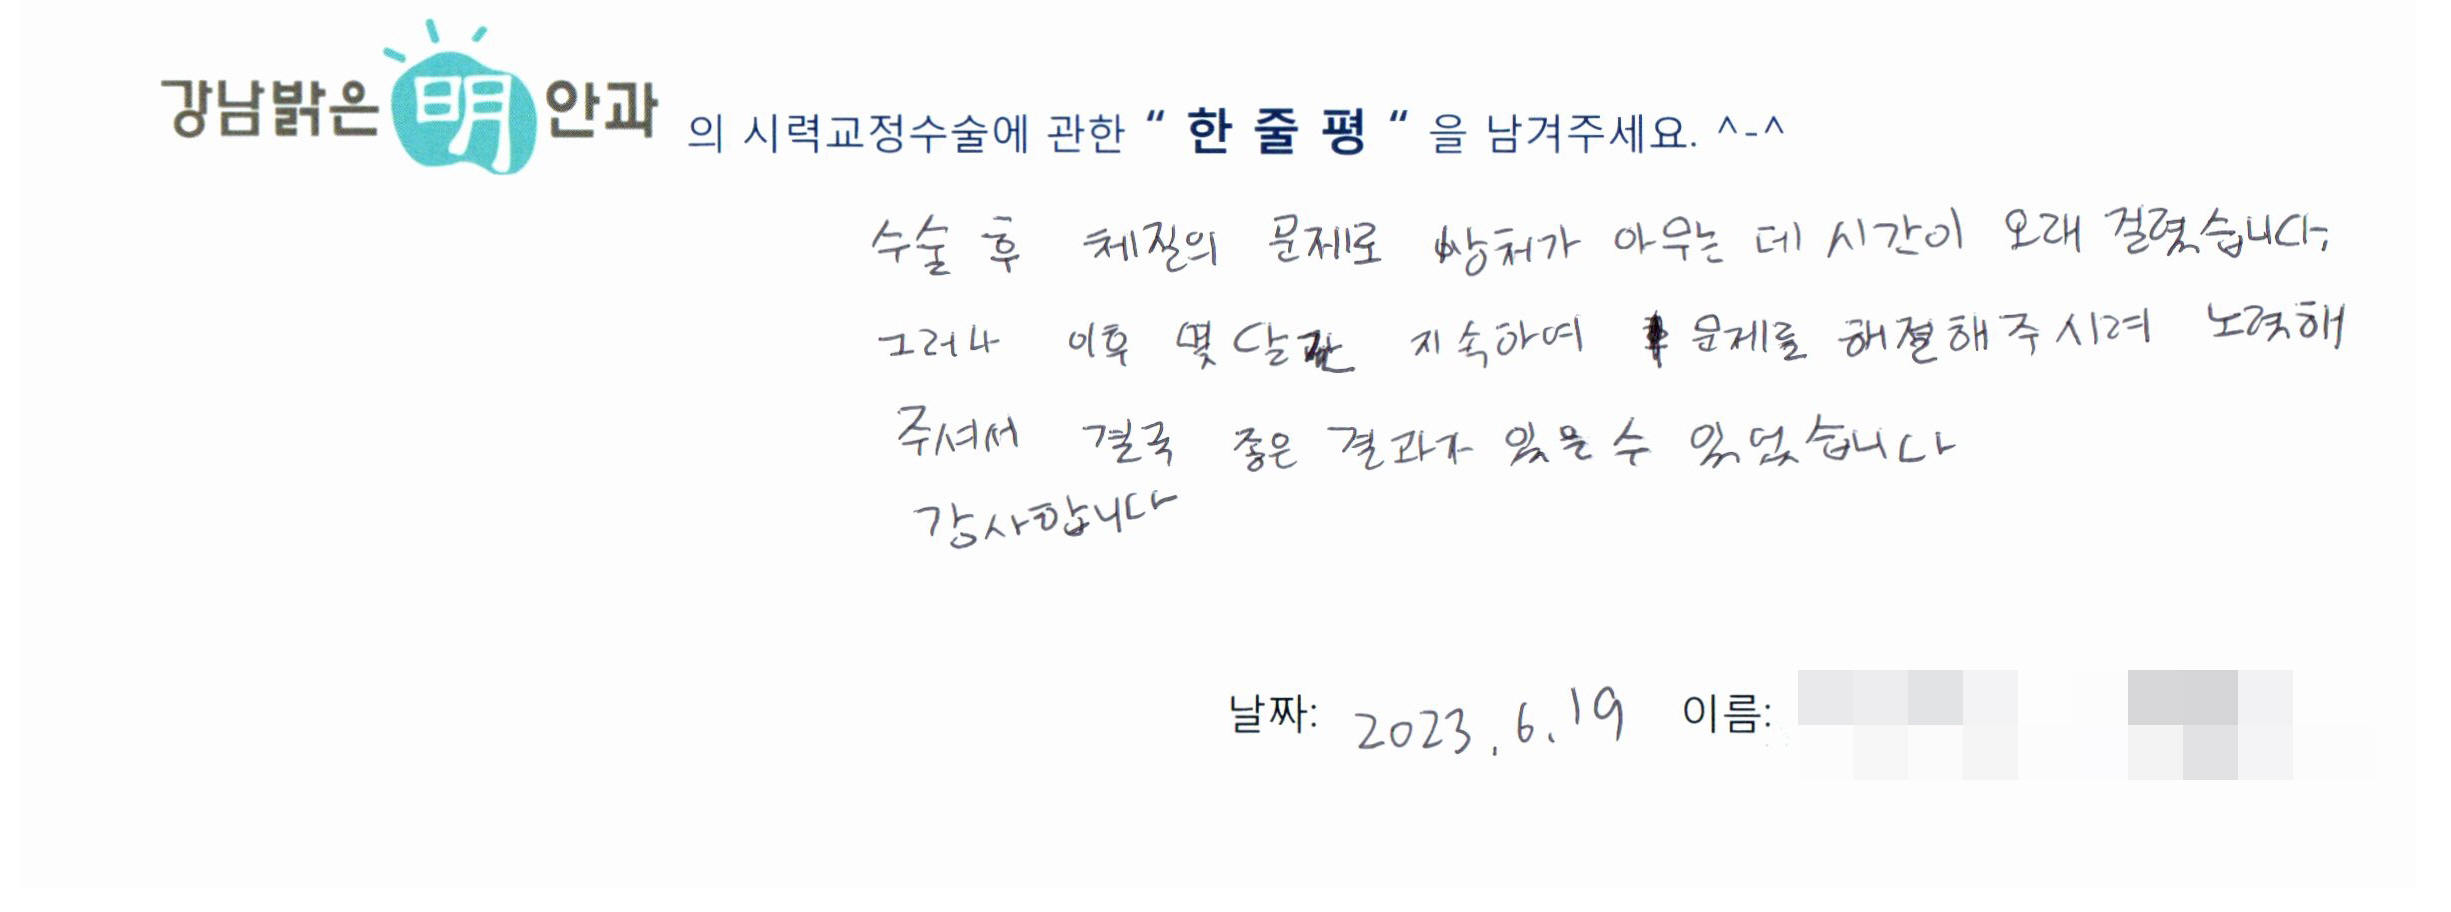 강남밝은明안과 의 시력교정수술에 관한 “ 한 줄 평 “ 을 남겨주세요. ^-^
수술 후 체질의 문제로 상처가 아무는 데 시간이 오래 걸렸습니다.
그러나 이후 몇달간 지속하여 문제를 해결해주시려 노력해
주셔서 결국 좋은 결과가 있을 수 있었습니다
감사합니다
날짜: 2023.6.19 이름: